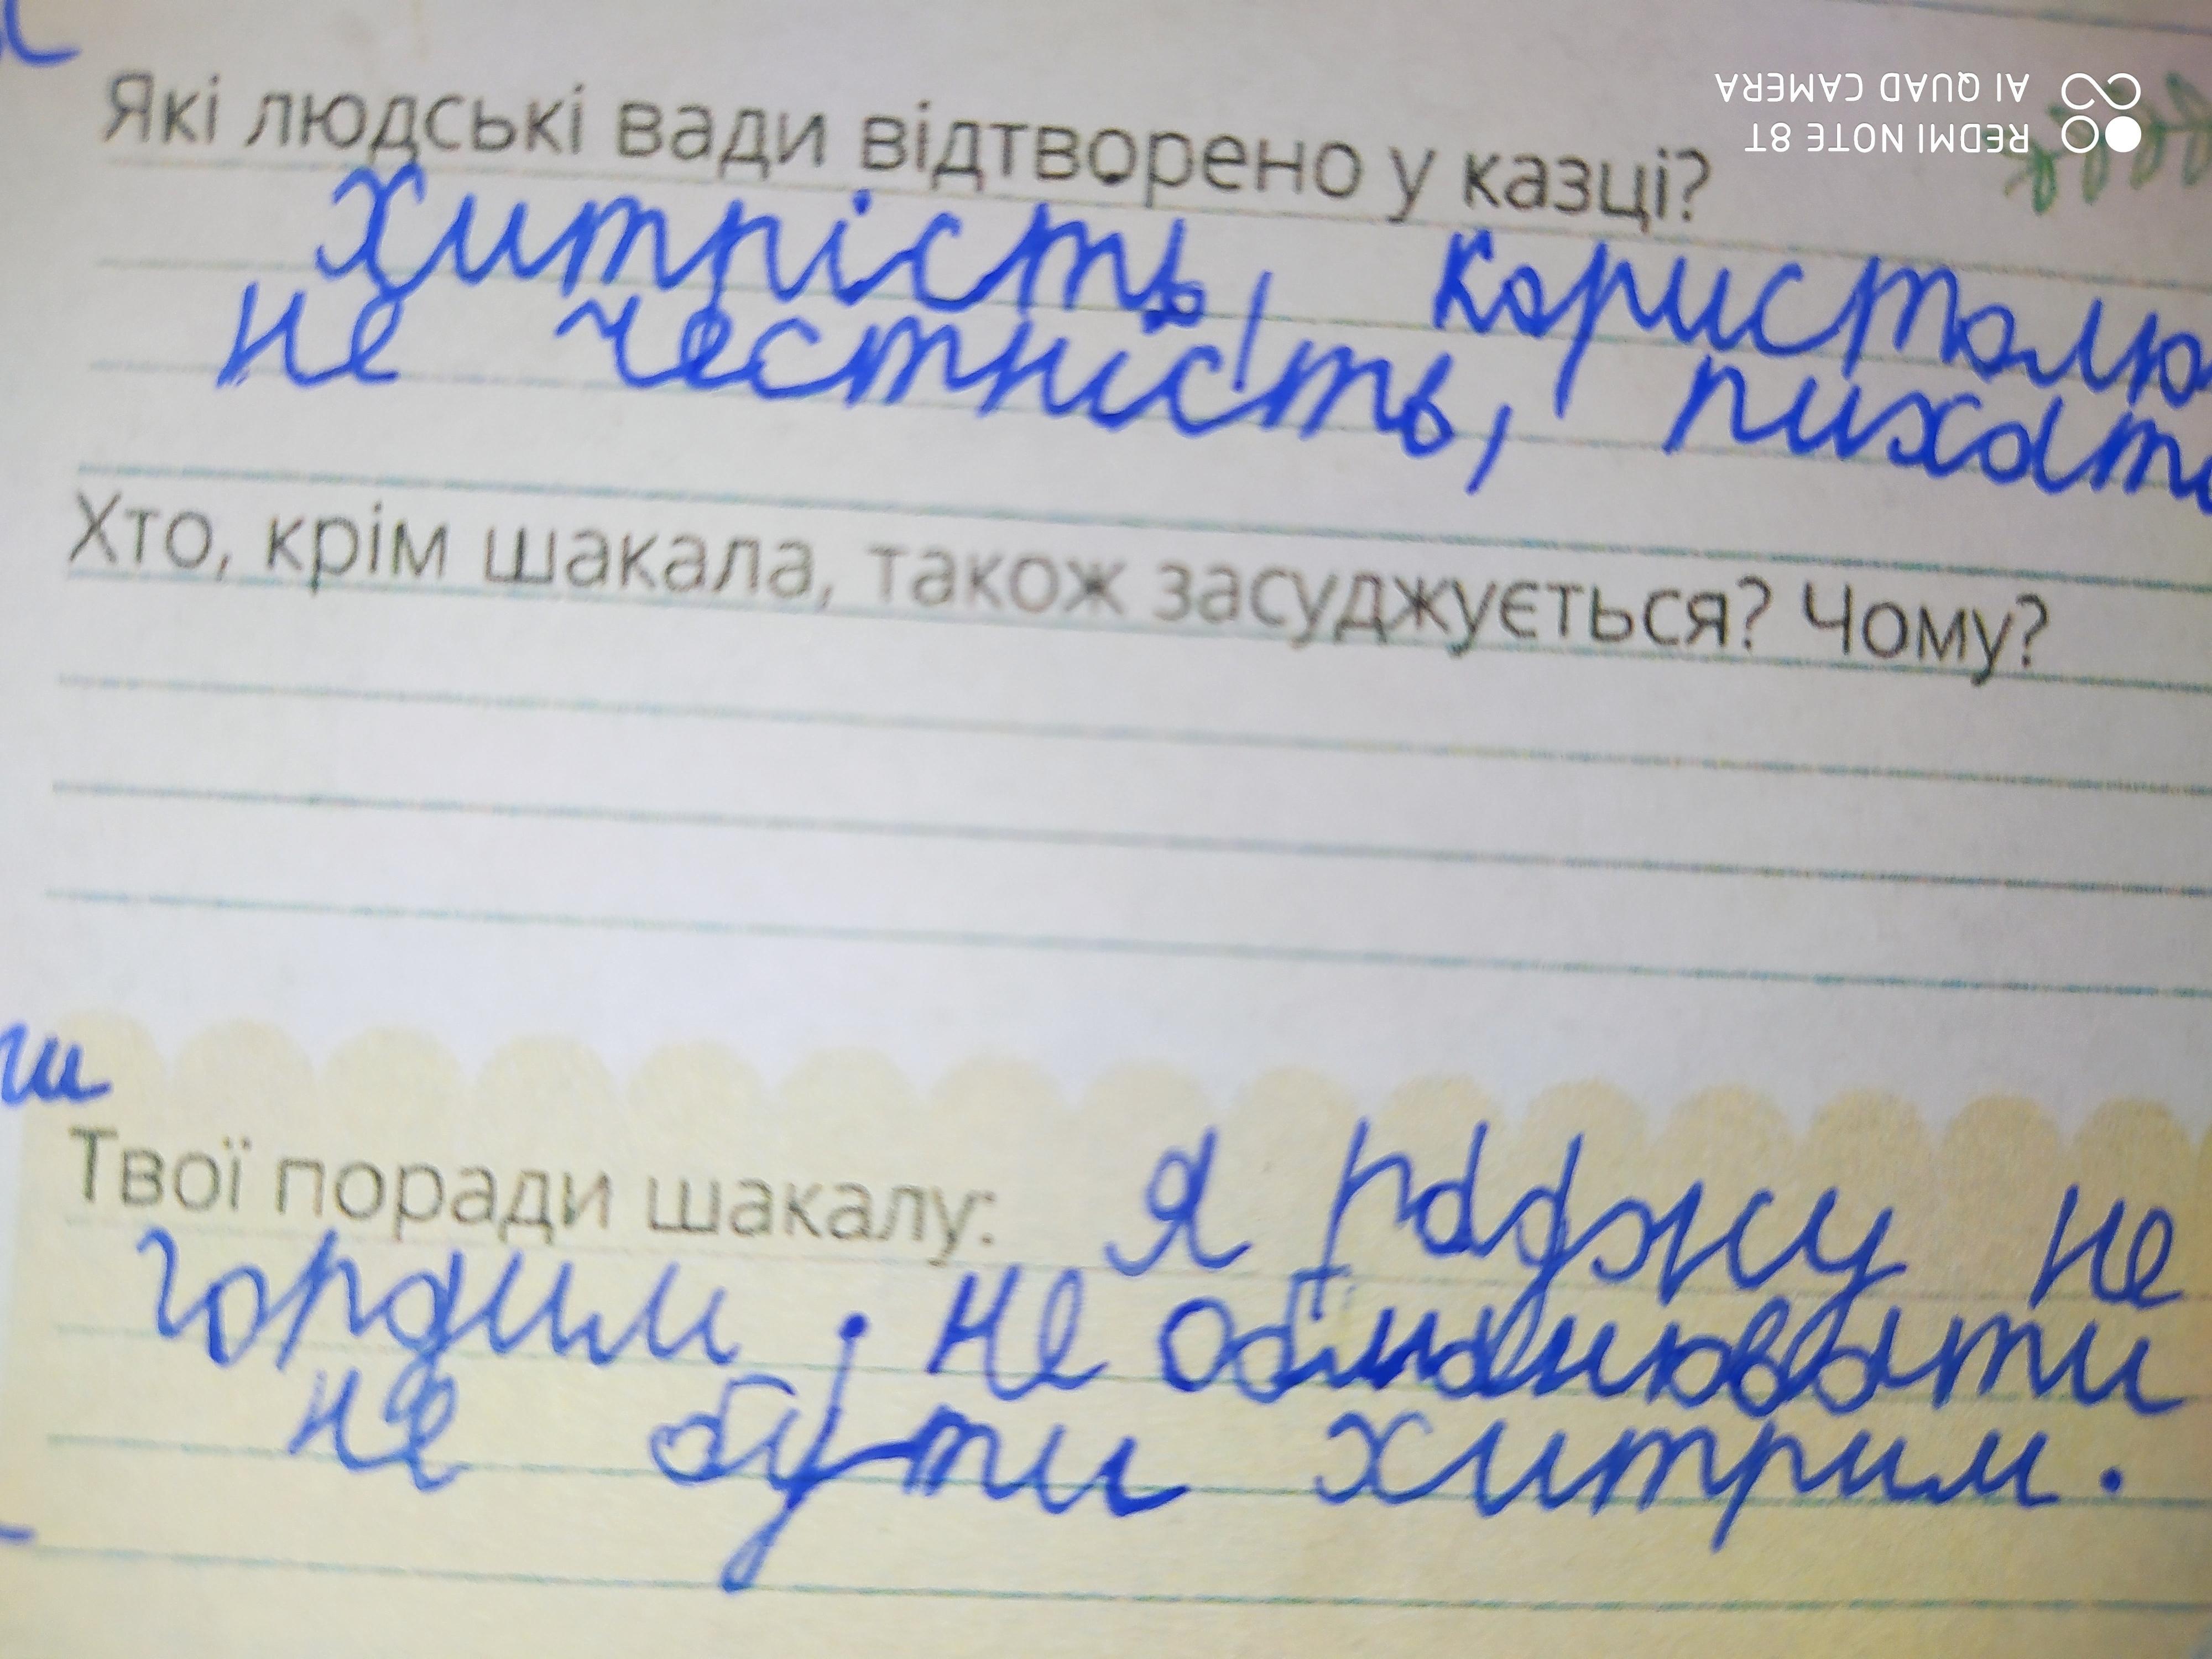 REDMI NOTE 8T
AI QUAD CAMERA
Які людські вади відтворено у казці?
Хитрість, користолю
не чесність, пихати
Хто, крім шакала, також засуджується? Чому?
ти
Твої поради шакалу: Я раджу не
гордим, не обманювати
не бути хитрим.